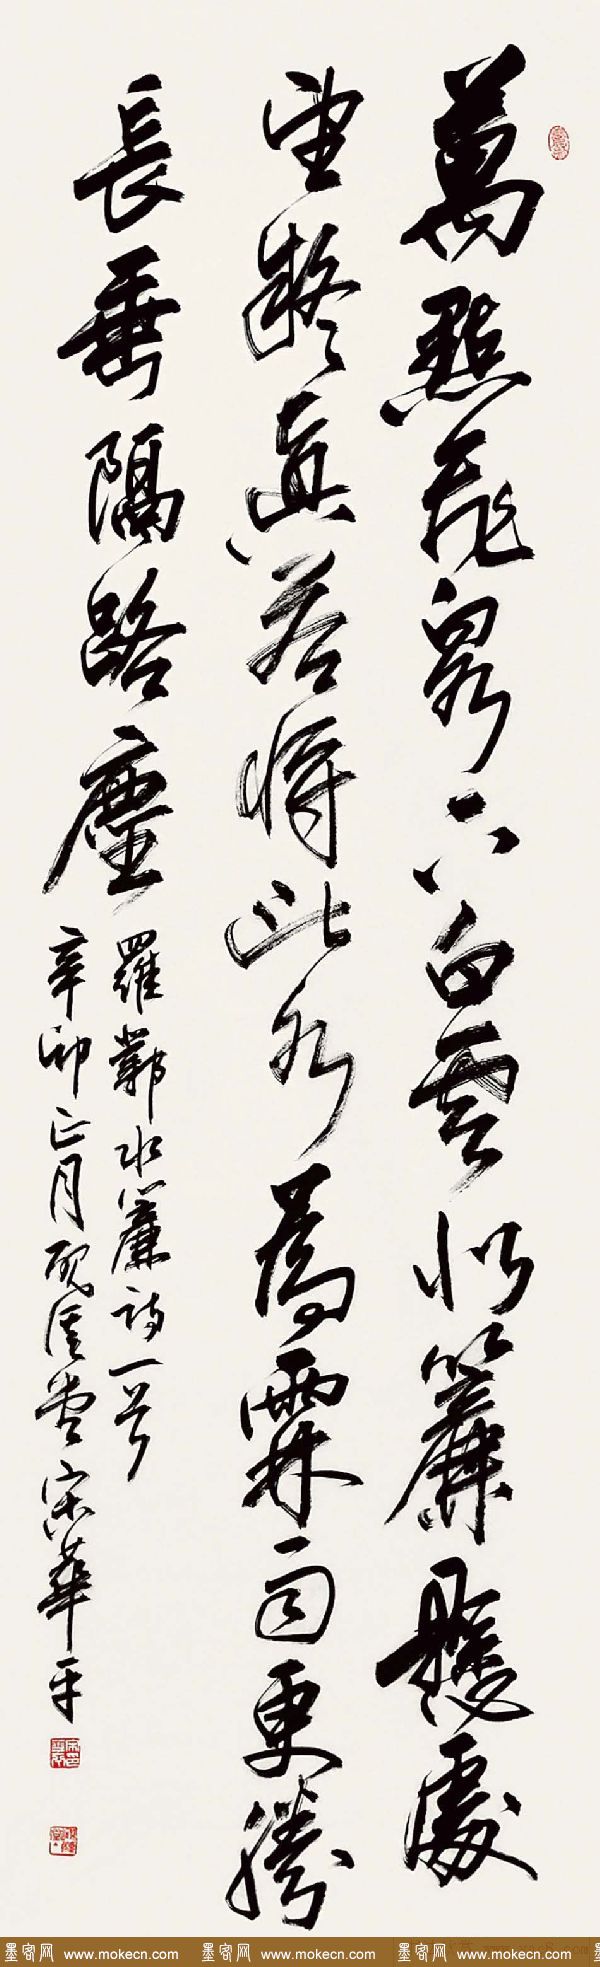 萬點飛泉下白雲似簾懸處
望疑真若將此水為霖雨更勝
長垂隔路塵
羅鄴水簾詩一首
辛卯正月堂宋華平
墨客网 www.mokecn.com 墨客网 www.mokecn.com 墨客网 www.mokecn.com